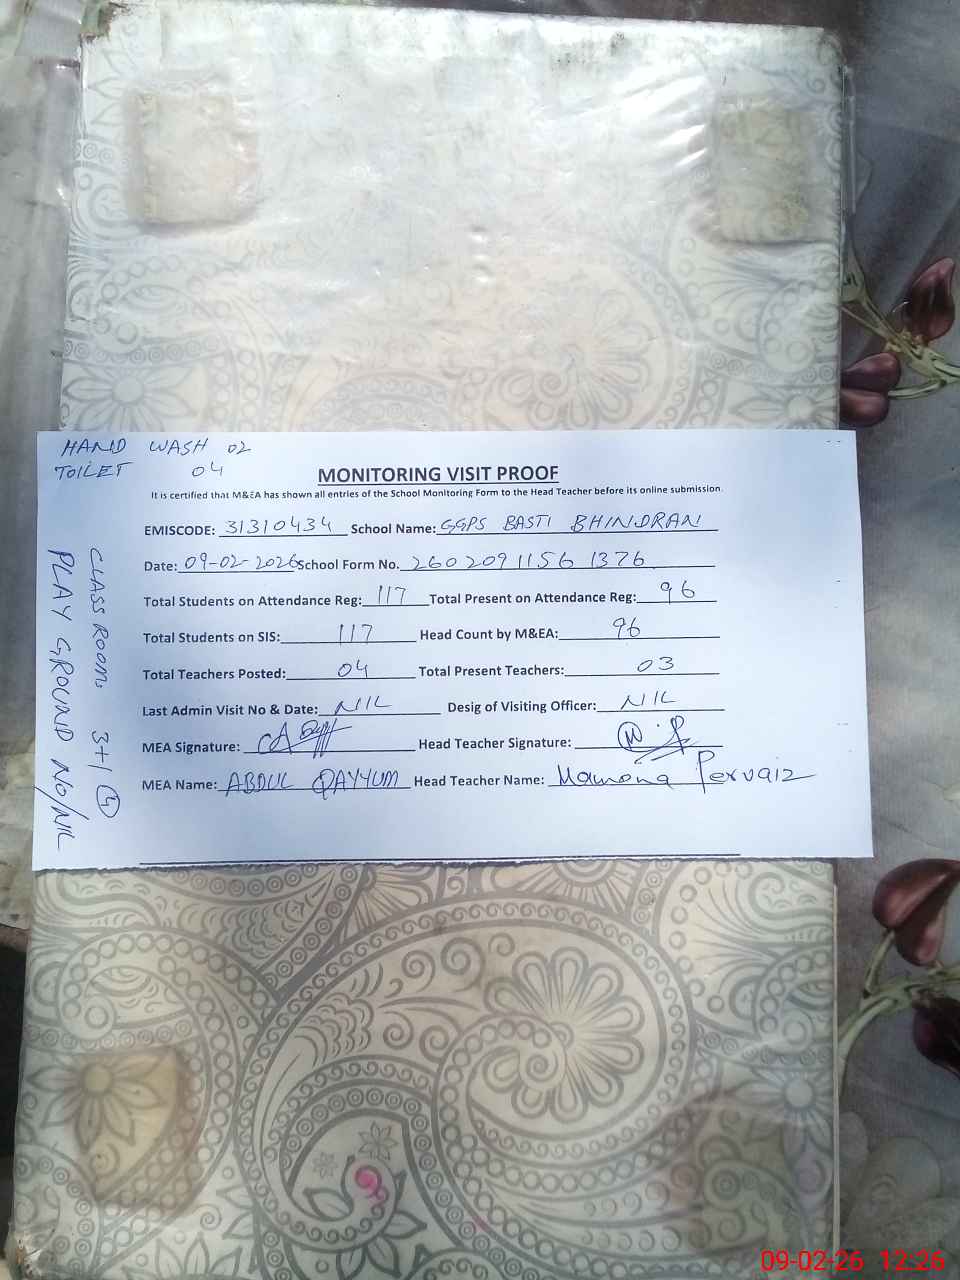 HAND WASH 02
TOILET 04
MONITORING VISIT PROOF
It is certified that M&EA has shown all entries of the School Monitoring Form to the Head Teacher before its online submission.
EMISCODE: 31310434 School Name: GGPS BASTI BHINDRAN
Date: 09-02-2026 School Form No. 2602091156 1376
Total Students on Attendance Reg: 117 Total Present on Attendance Reg: 96
Total Students on SIS: 117 Head Count by M&EA: 96
Total Teachers Posted: 04 Total Present Teachers: 03
Last Admin Visit No & Date: NIL Desig of Visiting Officer: NIL
MEA Signature: Head Teacher Signature:
MEA Name: ABDUL QAYYUM Head Teacher Name: Mamona Pervaiz
CLASS ROOMs 3+1 (4)
PLAY GROUND NO/NIL
09-02-26 12:26